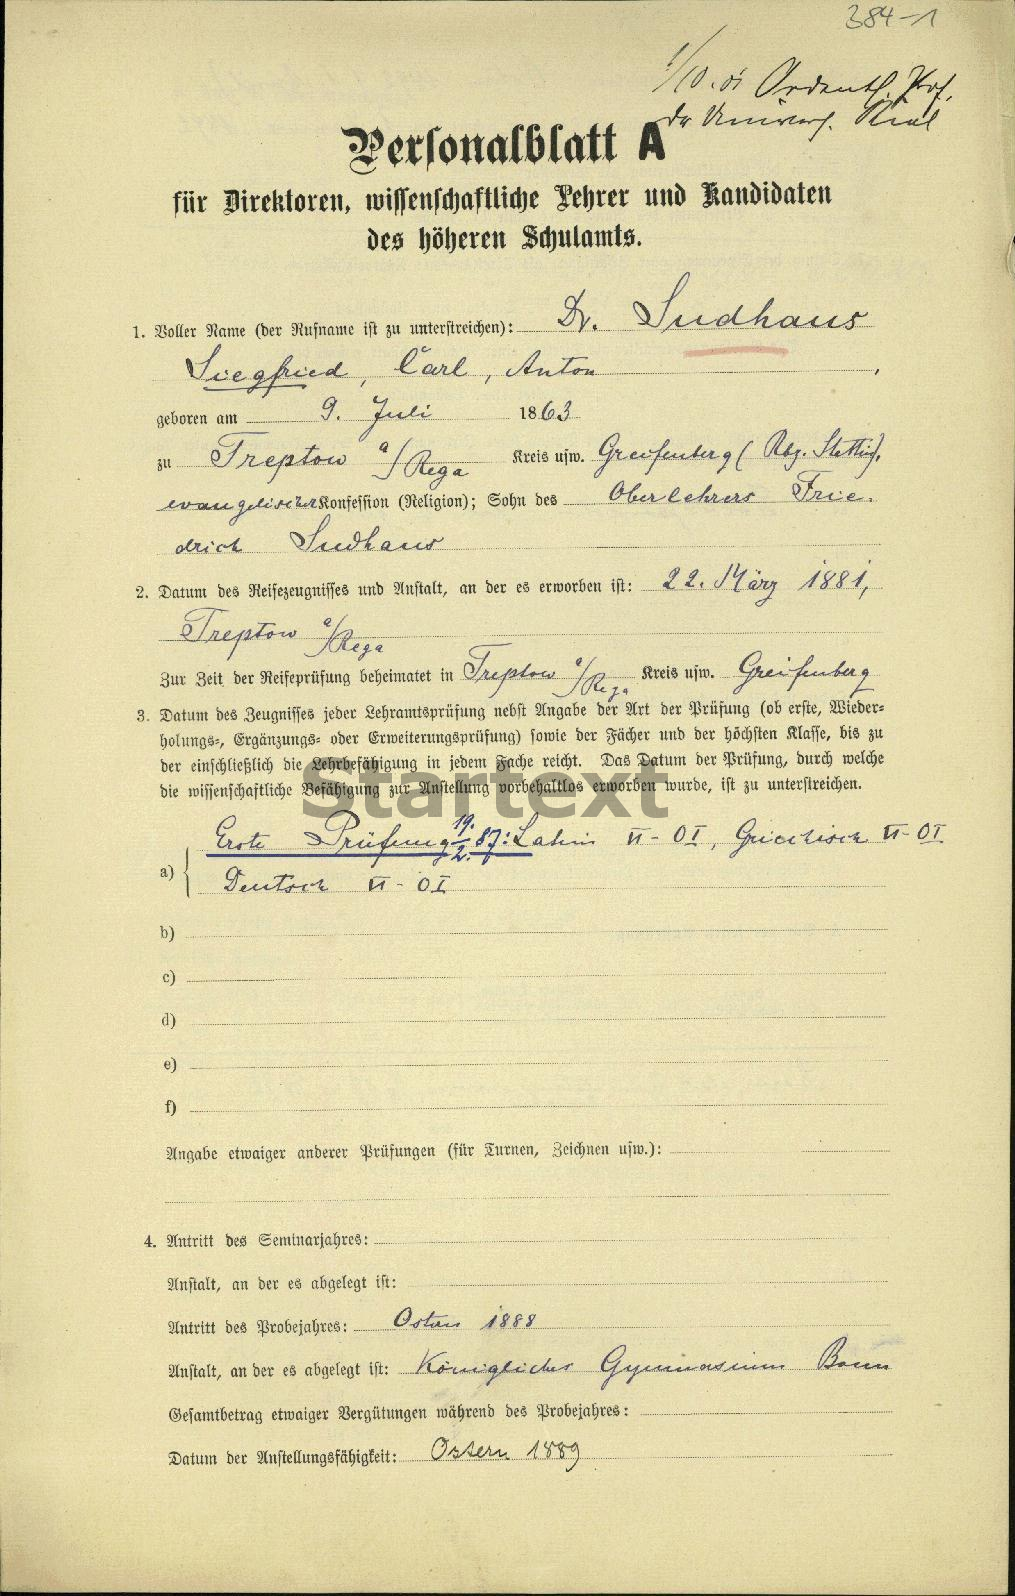 384-1
1/10.01 Ordentl. Prof.
der Univers. Kiel
Personalblatt A
für Direktoren, wissenschaftliche Lehrer und Kandidaten
des höheren Schulamts.
1. Voller Name (der Rufname ist zu unterstreichen): Dr. Sudhaus
Siegfried, Carl, Anton,
geboren am 9. Juli 1863
zu Treptow a/Rega Kreis usw. Greifenberg (Rbz. Stettin),
evangelischer Konfession (Religion); Sohn des Oberlehrers Frie-
drich Sudhaus
2. Datum des Reifezeugnisses und Anstalt, an der es erworben ist: 22. März 1881,
Treptow a/Rega
Zur Zeit der Reifeprüfung beheimatet in Treptow a/Rega Kreis usw. Greifenberg
3. Datum des Zeugnisses jeder Lehramtsprüfung nebst Angabe der Art der Prüfung (ob erste, Wieder-
holungs-, Ergänzungs- oder Erweiterungsprüfung) sowie der Fächer und der höchsten Klasse, bis zu
der einschließlich die Lehrbefähigung in jedem Fache reicht. Das Datum der Prüfung, durch welche
die wissenschaftliche Befähigung zur Anstellung vorbehaltlos erworben wurde, ist zu unterstreichen.
Startext
a) Erste Prüfung 19./2. 87: Latein VI-OI, Griechisch VI-OI
Deutsch VI-OI
b)
c)
d)
e)
f)
Angabe etwaiger anderer Prüfungen (für Turnen, Zeichnen usw.):
4. Antritt des Seminarjahres:
Anstalt, an der es abgelegt ist:
Antritt des Probejahres: Ostern 1888
Anstalt, an der es abgelegt ist: Königliches Gymnasium Bonn
Gesamtbetrag etwaiger Vergütungen während des Probejahres:
Datum der Anstellungsfähigkeit: Ostern 1889